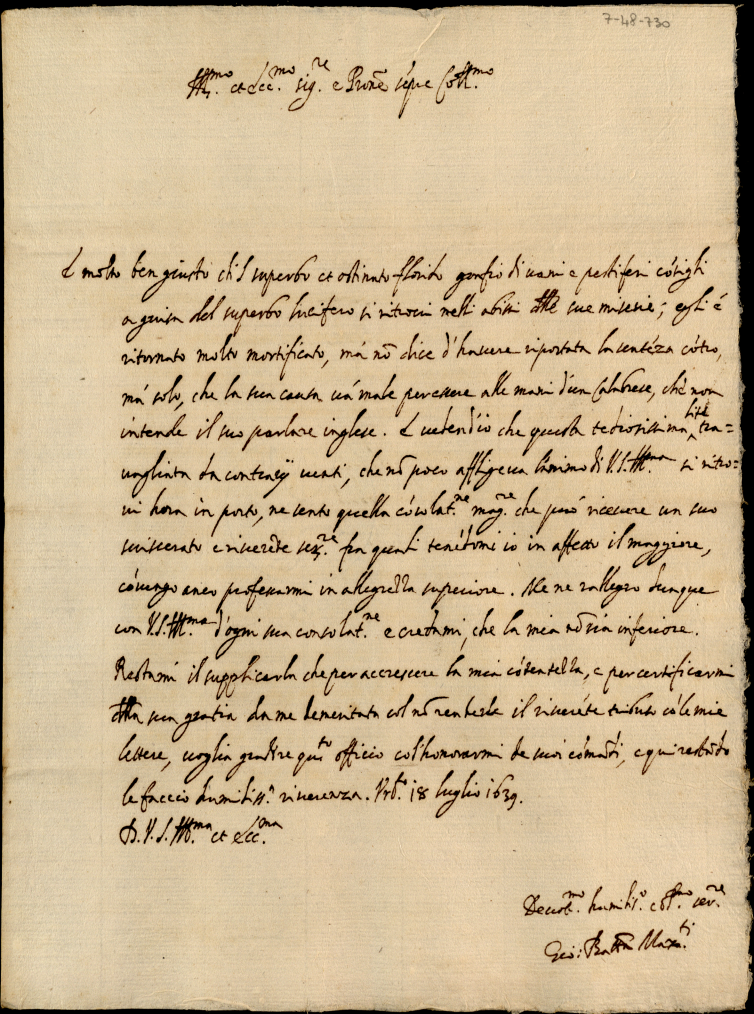 7-48-730
Ill.mo et Ecc.mo sig.re e Prone sepre Coll.mo
È molto ben giusto ch'l superbo et ostinato florido gonfio di uani e pestiferi cósigli
a guisa del superbo lucifero si ritroui nelli abissi delle sue miserie; egli é
ritornato molto mortificato, má nō dice d'hauere riportata la senteza cótro,
má solo, che la sua causa uá male per essere alle mani d'un Calabrese, ché non
intende il suo parlare inglese. E uedendo io che questa tediosissima lite tra=
uagliata da contrarij uenti, che nō poco affligeua l'animo di V.S. Ill.ma si ritro=
ui hora in porto, ne sento quella cósolat.ne mag.re che può riceuere un suo
suiscerato e riuerēte ser.re fra quali tenēdomi io in affetto il maggiore,
cóuengo anco professarmi in allegrezza superiore. Me ne rallegro dunque
con V.S. Ill.ma d'ogni sua consolat.ne e credami, che la mia nō sia inferiore.
Restami il supplicarla che per accrescere la mia cótentezza, e per certificarmi
della sua gratia da me demeritata col nō renderle il riuerēte tributo có le mie
lettere, uoglia gradire qusto officio col honorarmi de suoi comādi, e qui restādo
le faccio humiliss.a riuerenza. 18 luglio 1639.
D. V. S. Ill.ma et Ecc.ma
Deuot.mo humilis.o ser.re
Gio: Batta